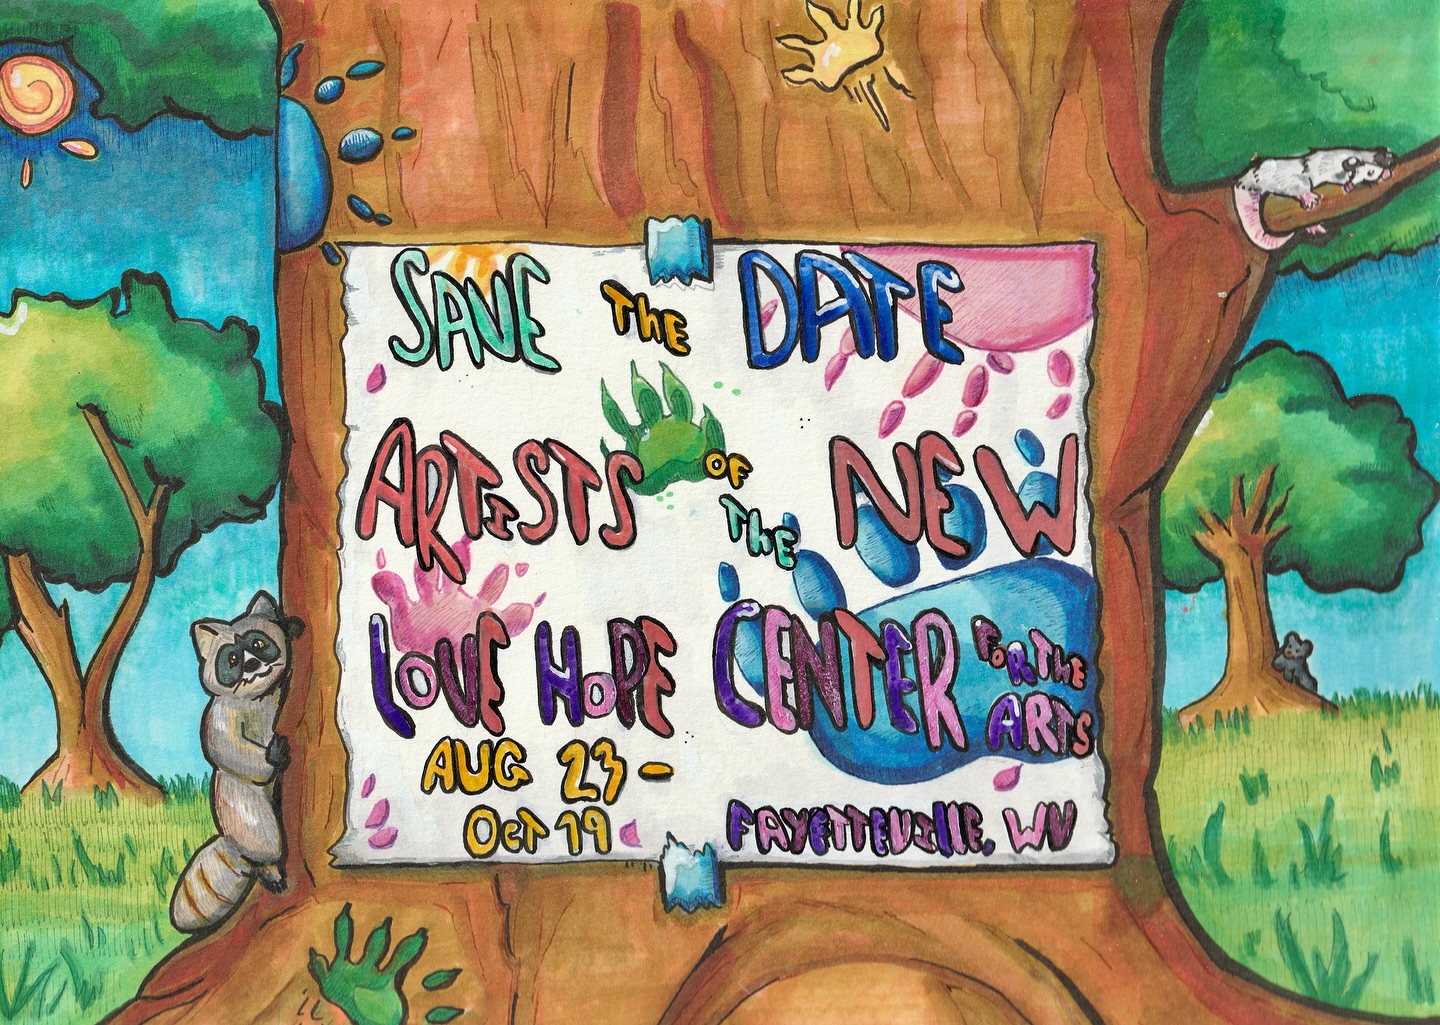 SAVE THE DATE
ARTISTS OF THE NEW
LOVE HOPE CENTER FOR THE ARTS
AUG 23 -
OCT 19
FAYETTEVILLE, WV